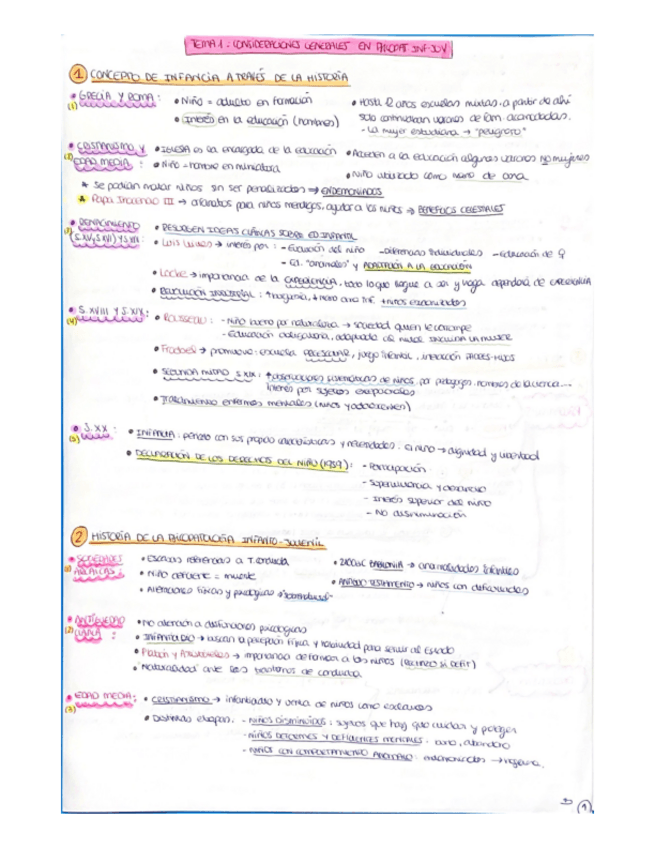 TEMA 1: CONSIDERACIONES GENERALES EN PSICOPAT INF-JUV
1 CONCEPTO DE INFANCIA A TRAVÉS DE LA HISTORIA
(1) GRECIA Y ROMA: • Niño = adulto en formación • Hasta 12 años escuelas mixtas, a partir de ahí
• Interés en la educación (hombres) solo continuaban varones de fam. acomodadas.
- La mujer estudiaba → "peligrero"
(2) CRISTIANISMO Y EDAD MEDIA: • IGLESIA es la encargada de la educación • Acceden a la educación algunos varones NO mujeres
• Niño = hombre en miniatura • Niño utilizado como mano de obra
* Se podían matar niños sin ser penalizados → ENDEMONIADOS
Papa Inocencio III → orfanatos para niños mendigos, ayudar a los niños → BENEFICIOS CELESTIALES
(3) RENACIMIENTO (S.XV, S.XVI) Y S.XVII: • RESURGEN IDEAS CLÁSICAS SOBRE ED. INFANTIL
• Luis Vives → interés por: - Evolución del niño - Diferencias individuales - Educación de ♀
- Ed. "anormales" y ADAPTACIÓN A LA EDUCACIÓN
• Locke → importancia de la EXPERIENCIA, todo lo que llegue a ser y haga dependerá de EXPERIENCIA
• REVOLUCIÓN INDUSTRIAL: ↑ + niños explotados
(4) S. XVIII Y S. XIX: • Rousseau: - Niño bueno por naturaleza → sociedad quien le corrompe
- Educación obligatoria, adaptada al niño. INCLUIDA LA MUJER
• Froebel → promueve: escuela PREESCOLAR, juego infantil, interacción PADRES-HIJOS
• SEGUNDA MITAD S.XIX: ↑ observaciones sistemáticas de niños, por pedagogos, hombres de la ciencia...
Interés por sujetos excepcionales
• Tratamiento enfermos mentales (niños y adolescentes)
(5) S. XX: • INFANCIA: periodo con sus propias características y necesidades: el niño → dignidad y libertad
• DECLARACIÓN DE LOS DERECHOS DEL NIÑO (1959): - Participación
- Supervivencia y desarrollo
- Interés superior del niño
- No discriminación
2 HISTORIA DE LA PSICOPATOLOGÍA INFANTO-JUVENIL
(1) SOCIEDADES ARCAICAS: • Escasas referencias a T. conducta • 2800 a.C BABILONIA → anormalidades infantiles
• Niño deforme = muerte • ANTIGUO TESTAMENTO → niños con dificultades
• Alteraciones físicas y psicológicas
(2) ANTIGÜEDAD CLÁSICA: • No atención a disfunciones psicológicas
• INFANTICIDIO → buscan la perfección física y habilidad para servir al Estado
• Platón y Aristóteles → importancia de formar a los niños (RECHAZO SI DEFIT)
• "Naturalidad" ante los trastornos de conducta.
(3) EDAD MEDIA: • CRISTIANISMO → infanticidio y venta de niños como esclavos
• Distintas etapas: - NIÑOS DISMINUIDOS: sujetos que hay que cuidar y proteger
- NIÑOS DEFORMES Y DEFICIENTES MENTALES: abandono
- NIÑOS CON COMPORTAMIENTO ANORMAL: → hoguera.
1